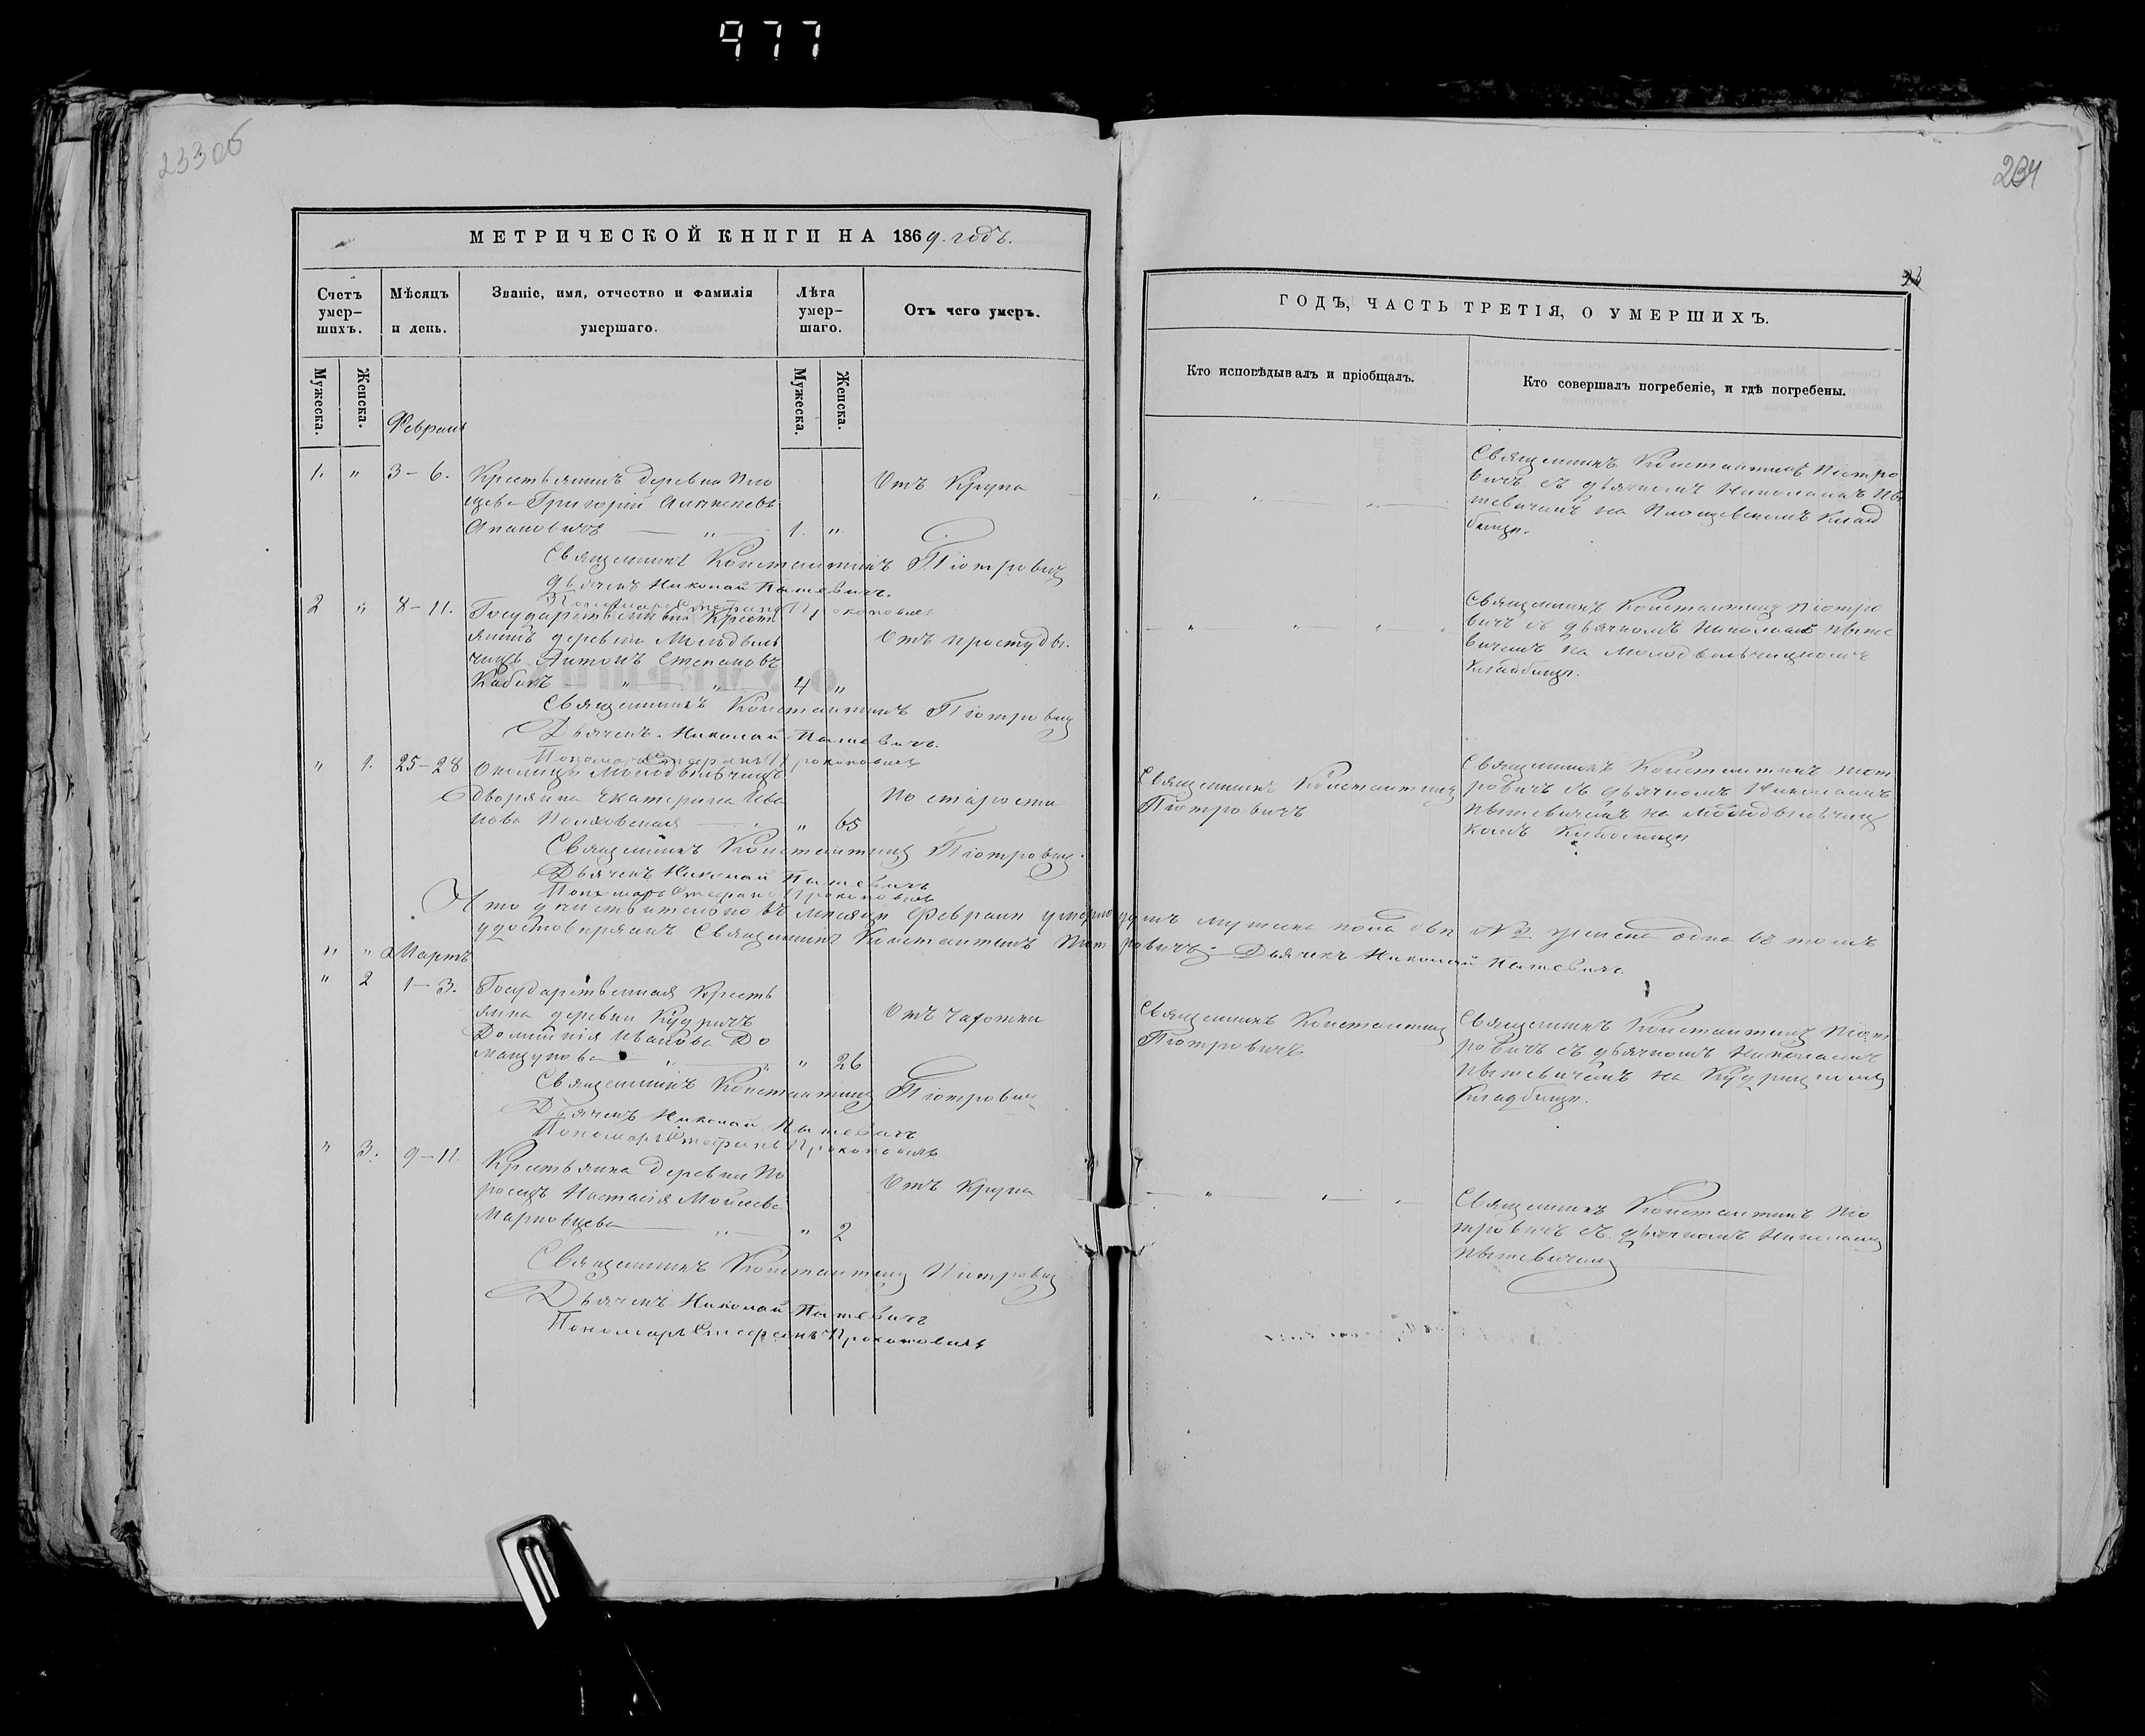 977
233об
234
МЕТРИЧЕСКОЙ КНИГИ НА 1869. годъ.
Счетъ умер-
шихъ.
Мѣсяцъ
и день.
Званіе, имя, отчество и фамилія
умершаго.
Лѣта
умер-
шаго.
Отъ чего умеръ.
Мужеска.
Женска.
Мужеска.
Женска.
Февраль
1. " 3–6. Крестьянинъ деревни Пло
щево Григорій
1. "
Отъ Крупа
Священникъ Константинъ Піотровичъ
Дьячекъ Николай Пытевичъ.
Пономарь Стефанъ Прокоповичъ
2 " 8–11. Государственный Кресть
янинъ деревни Молодѣль
чицъ Антонъ Степановъ
4 "
Отъ простуды.
Священникъ Константинъ Піотровичъ
Дьячекъ Николай Пытевичъ.
Пономарь Стефанъ Прокоповичъ
" 1. 25–28 Околицы Молодѣльчицъ
Дворянка Екатерина Ива
нова
" 65
По старости
Священникъ Константинъ Піотровичъ.
Дьячекъ Николай Пытевичъ
Пономарь Стефанъ Прокоповичъ
Что дѣйствительно въ мѣсяцѣ Февралѣ умершихъ мужеска пола два № 2 женска одна въ томъ
удостовѣряемъ Священникъ Константинъ Піотровичъ. Дьячекъ Николай Пытевичъ.
" " Мартъ
" 2 1–3. Государственная Кресть
янка деревни Кудричъ
Ивановa До
" 26
Отъ чахотки
Священникъ Константинъ Піотровичъ
Дьячекъ Николай Пытевичъ
Пономарь Стефанъ Прокоповичъ
" 3. 9–11. Крестьянка деревни По
рослъ Настасія Моисеева
" 2
Отъ Крупа
Священникъ Константинъ Піотровичъ
Дьячекъ Николай Пытевичъ
Пономарь Стефанъ Прокоповичъ
ГОДЪ, ЧАСТЬ ТРЕТІЯ, О УМЕРШИХЪ.
Кто исповѣдывалъ и пріобщалъ.
Кто совершалъ погребеніе, и гдѣ погребены.
Священникъ Константинъ Піотро
вичъ съ дьячкомъ Николаемъ Пы
тевичемъ на Площевскомъ Клад
бищѣ.
Священникъ Константинъ Піотро
вичъ съ дьячкомъ Николаемъ Пыте
вичемъ на Молодѣльчицкомъ
Кладбищѣ.
Священникъ Константинъ
Піотровичъ
Священникъ Константинъ Піот
ровичъ съ дьячкомъ Николаемъ
Пытевичемъ на Молодѣльчиц
комъ Кладбищѣ
Священникъ Константинъ
Піотровичъ
Священникъ Константинъ Піот
ровичъ съ дьячкомъ Николаемъ
Пытевичемъ на Кудрицкомъ
Кладбищѣ.
Священникъ Константинъ Піо
тровичъ съ дьячкомъ Николаемъ
Пытевичемъ